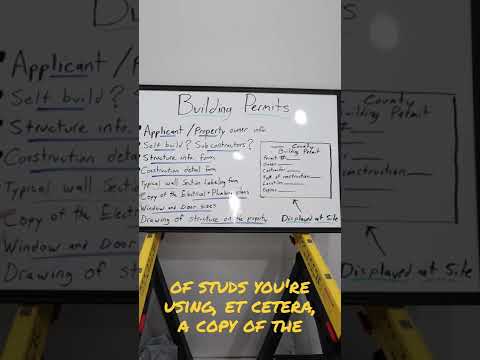 Building Permits
Applicant / Property owner info
Self build? Subcontractors?
Structure info form
Construction detail form
Typical wall Section Labeling form
Copy of the Electrical + Plumbing plans
Window and Door sizes
Drawing of structure on the property
County
Building Permit
Permit #
Owner
Contractor
Type of construction
Location
Expires
Displayed at Site
OF STUDS YOU'RE
USING, ET CETERA,
A COPY OF THE
Applicant / P
Self build?
Structure info
Construction detail
Typical wall Sect
Copy of the Elect
Window and Door
Drawing of st
County
Building Permit
Displayed at Site